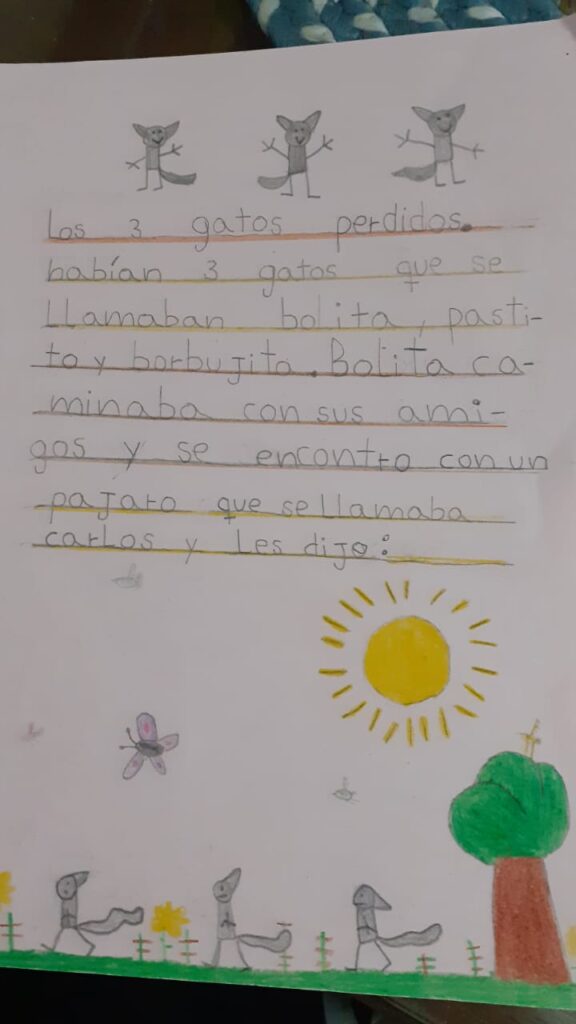 Los 3 gatos perdidos.
habían 3 gatos que se
llamaban bolita, pasti-
to y borbujita. Bolita ca-
minaba con sus ami-
gos y se encontro con un
pajaro que se llamaba
carlos y les dijo: